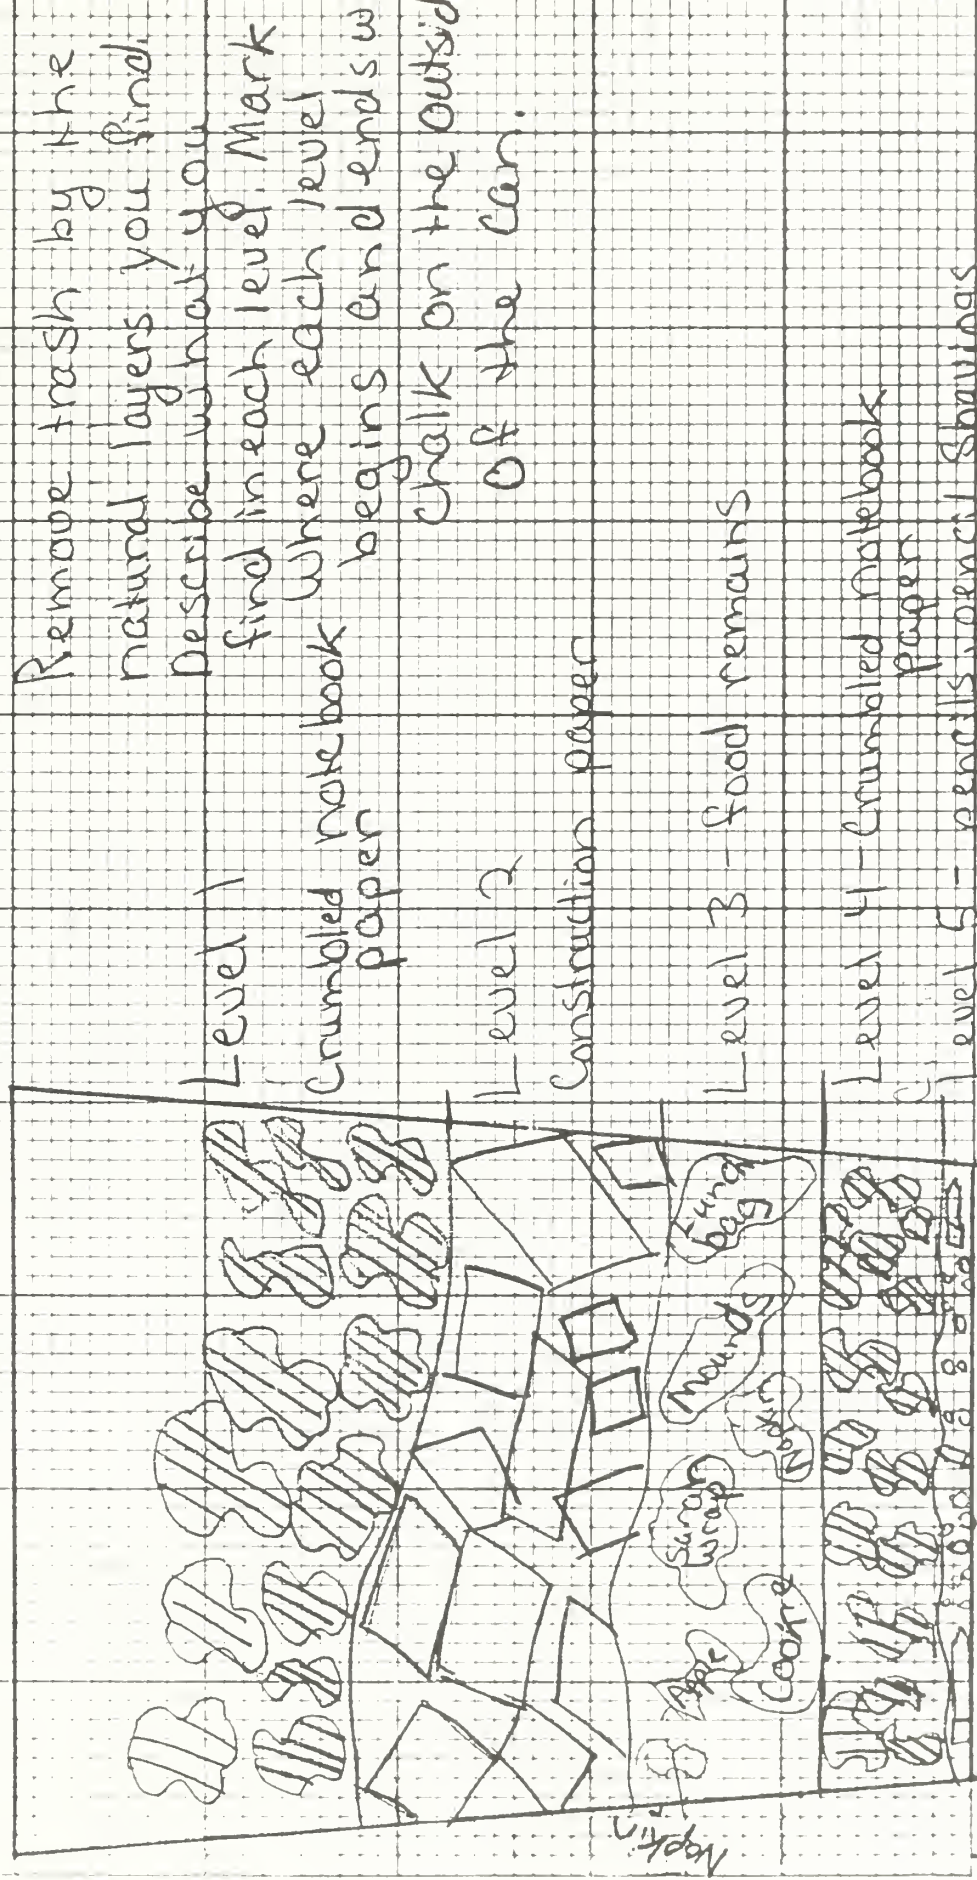 Remove trash by the
natural layers you find.
Describe what you
find in each level. Mark
where each level
begins and ends w
chalk on the outsid
of the can.
Level 1
Crumbled notebook
paper
Level 2
Construction paper
Level 3 - food remains
Level 4 - Crumbled notebook
paper
Level 5 - pencils, pencil shavings
Napkin
Apple
Cookie
Saran
wrap
Napkin
Mounds
Lunch
bag